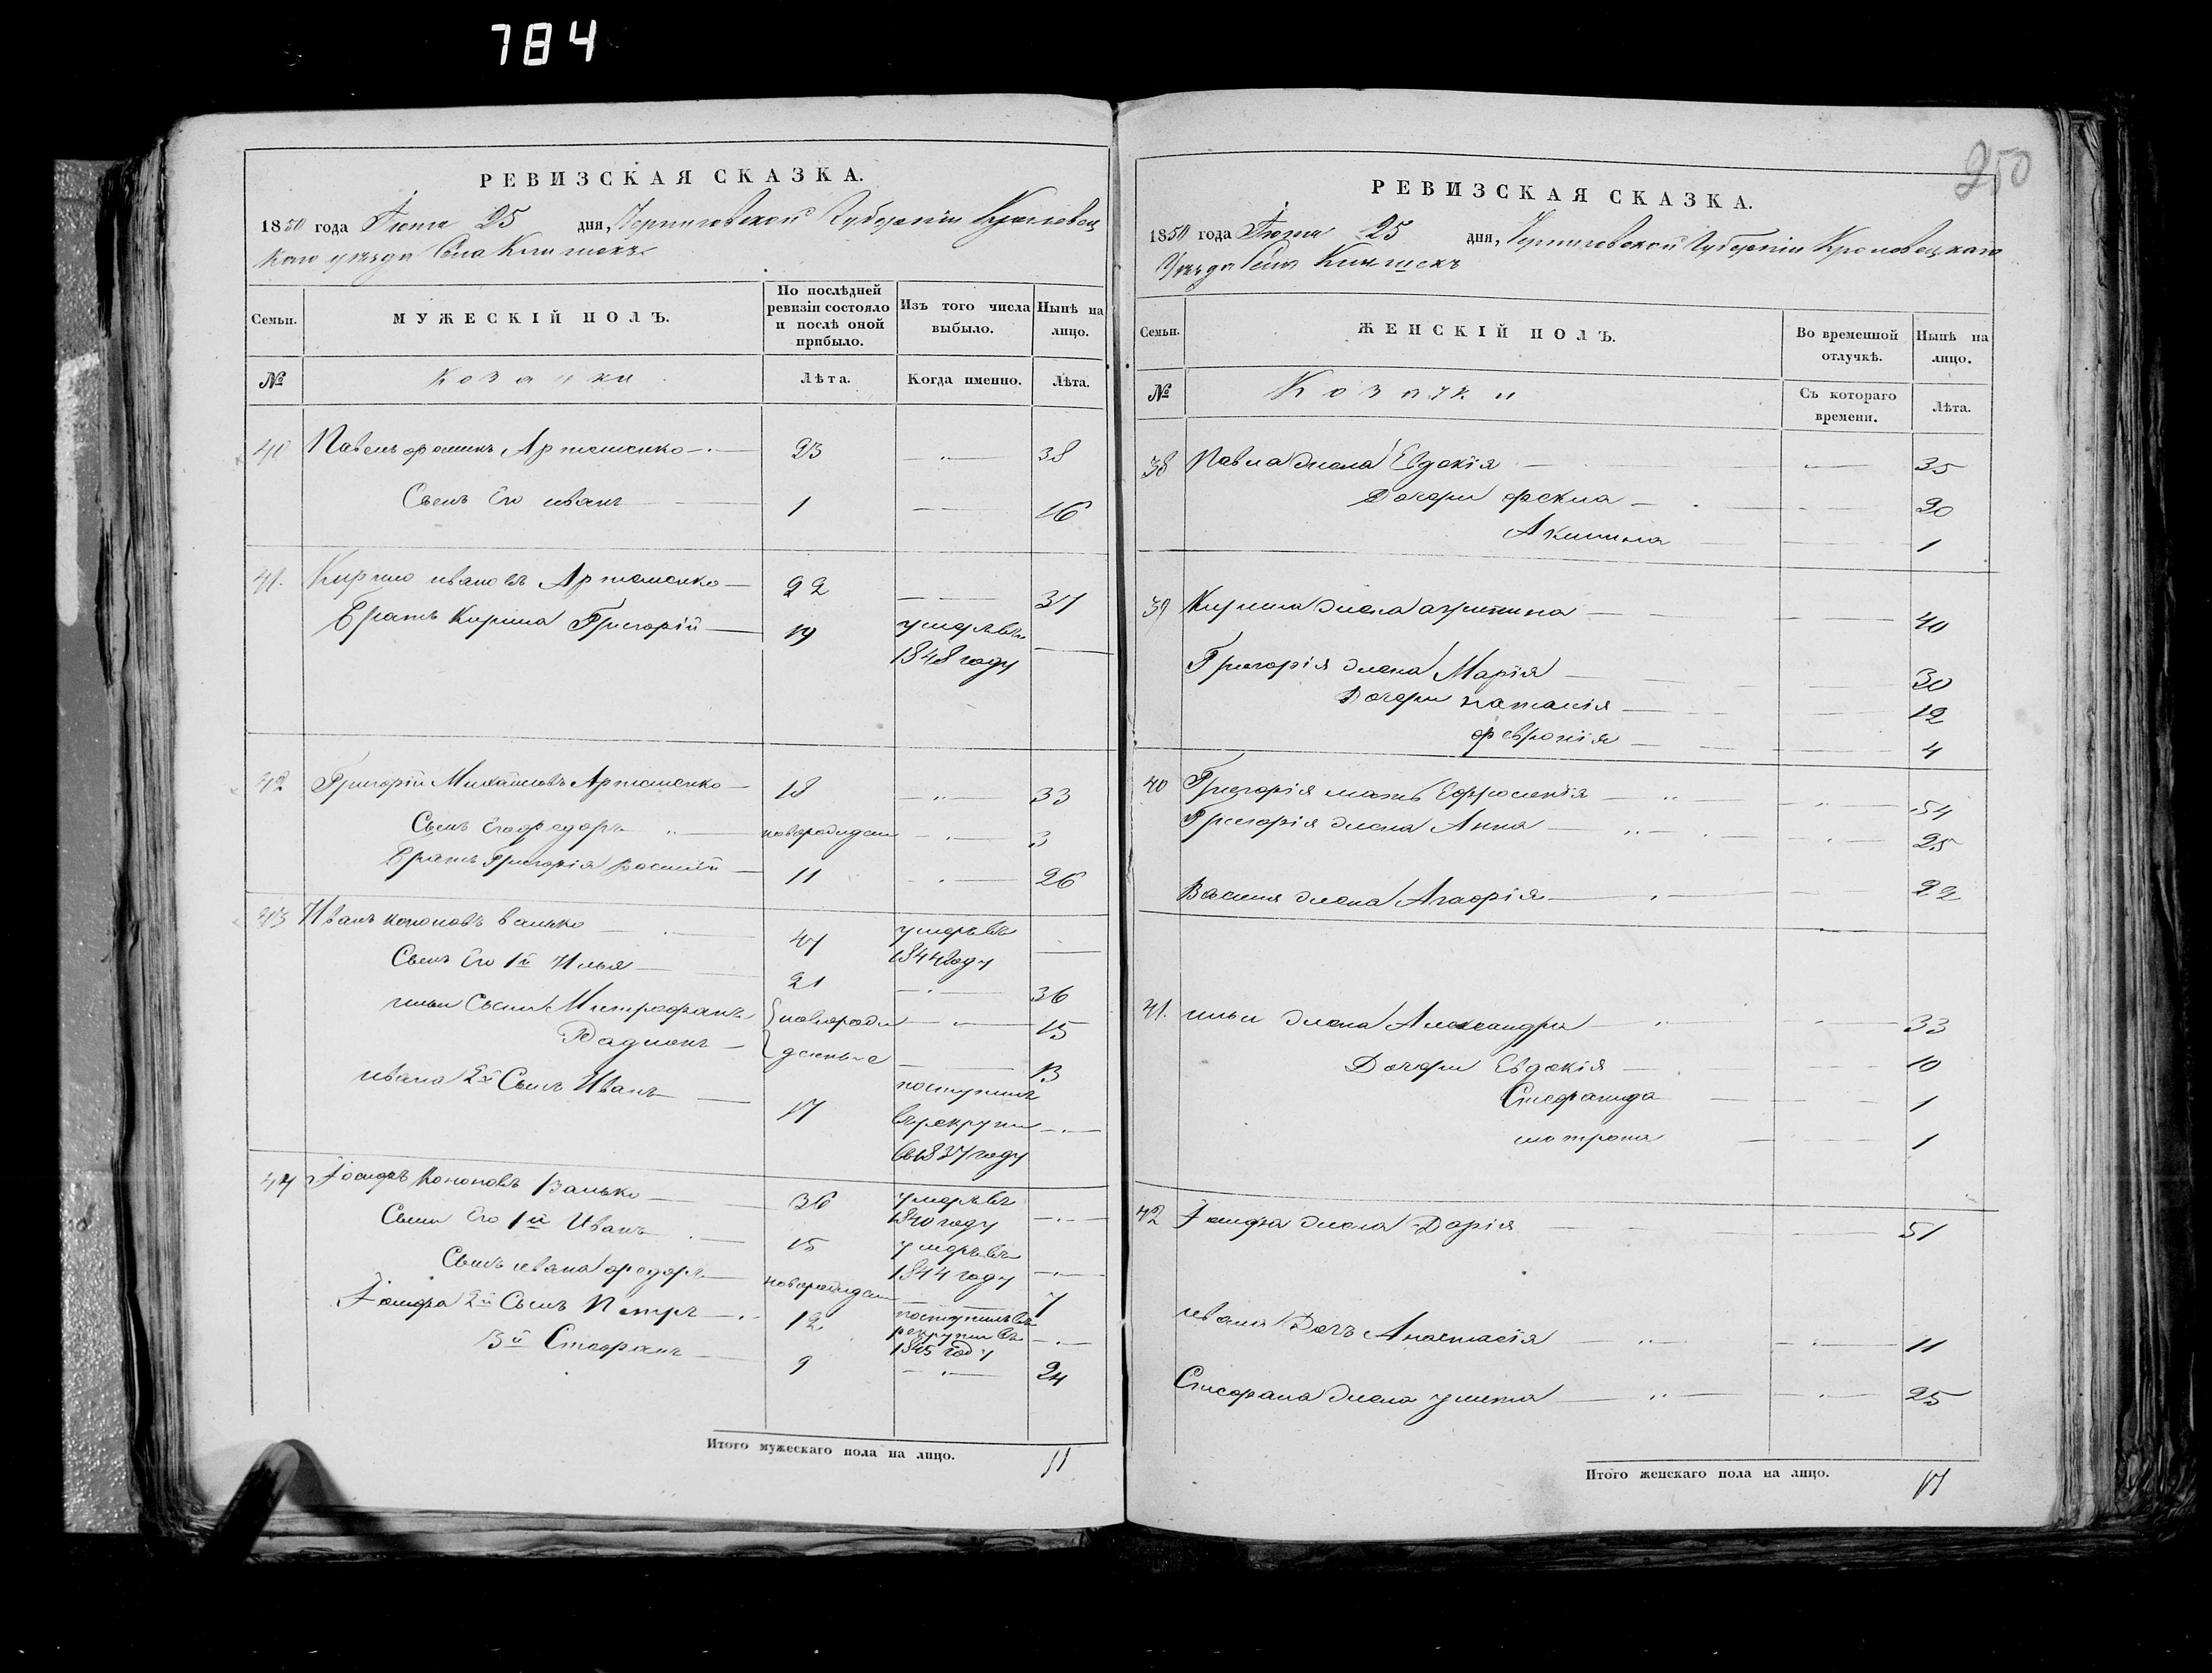 784
250
РЕВИЗСКАЯ СКАЗКА.
1850 года Іюня 25 дня, Черниговской Губерніи Кролевец
каго уезда Села Клишекъ
Семьи. МУЖЕСКІЙ ПОЛЪ. По послѣдней ревизіи состояло и послѣ оной прибыло. Изъ того числа выбыло. Нынѣ на лицо.
№ Козаки Лѣта. Когда именно. Лѣта.
40 Павелъ фоминъ Артюменко 23 38
Сынъ Его иванъ 1 16
41. Кирило ивановъ Артюменко 22 37
Братъ Кирила Григорій 19 умеръ въ
1848 году
42 Григорій Михайловъ Артюменко 18 33
Сынъ Его федоръ новорожден 3
Братъ Григорія Василій 11 26
43 Иванъ кононовъ Ванько 47 умеръ въ
1844 году
Сынъ Его 1й Илья 21 36
ильи Сыни Митрофанъ новорожде 15
Радионъ денные 13
ивана 2й Сынъ Иванъ 17 поступилъ
в рекруты
в 1837 году
44 Іосифъ Кононовъ Ванько 36 умеръ въ
1840 году
Сыни Его 1й Иванъ 15 умеръ въ
1844 году
Сынъ ивана федоръ новорожден 7
Іосифа 2й Сынъ Петръ 12 поступилъ въ
рекруты въ
1845 году
3й Стефанъ 9 24
Итого мужескаго пола на лицо. 11
РЕВИЗСКАЯ СКАЗКА.
1850 года Іюня 25 дня, Черниговской Губерніи Кролевецкаго
Уезда Села Клишекъ
Семьи. ЖЕНСКІЙ ПОЛЪ. Во временной отлучкѣ. Нынѣ на лицо.
№ Козачки Съ котораго времени. Лѣта.
38 Павла жена Евдокія 35
Дочери фекла 20
Акилина 1
39 Кирила жена агрипина 40
Григорія жена Марія 30
Дочери наталія 12
февронія 4
40 Григорія мать Ефросинія 54
Григорія жена Анна 25
Василия жена Агафія 22
41. ильи жена Александра 33
Дочери Евдокія 10
Стефанида 1
мотрона 1
42 Іосифа жена Дарія 51
ивана Дочъ Анастасія 11
Стефана жена улита 25
Итого женскаго пола на лицо. 17